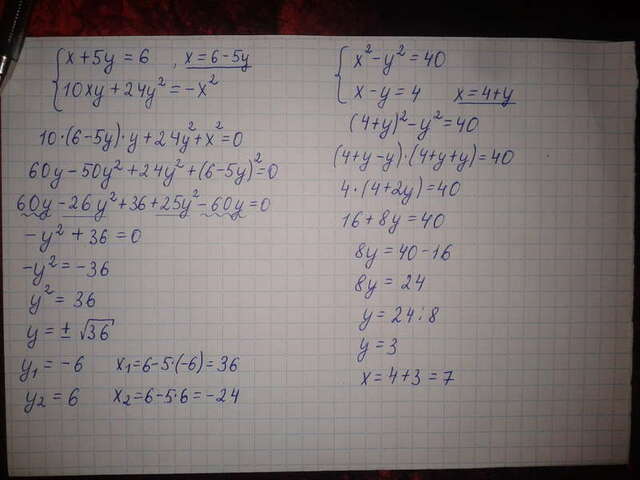 x + 5y = 6 , x = 6 - 5y
10xy + 24y² = -x²
10·(6-5y)·y + 24y² + x² = 0
60y - 50y² + 24y² + (6-5y)² = 0
60y - 26y² + 36 + 25y² - 60y = 0
-y² + 36 = 0
-y² = -36
y² = 36
y = ± √36
y₁ = -6 x₁ = 6-5·(-6) = 36
y₂ = 6 x₂ = 6-5·6 = -24
x² - y² = 40
x - y = 4 x = 4+y
(4+y)² - y² = 40
(4+y-y)·(4+y+y) = 40
4·(4+2y) = 40
16 + 8y = 40
8y = 40 - 16
8y = 24
y = 24 : 8
y = 3
x = 4 + 3 = 7